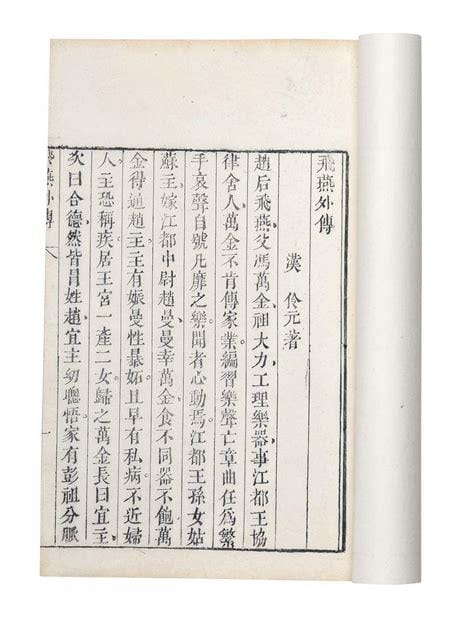 飛燕外傳
漢 伶元著
趙后飛燕父馮萬金祖大力工理樂器事江都王協
律舍人萬金不肯傳家業編習樂聲亡章曲任爲繁
手哀聲自號凡靡之樂聞者心動焉江都王孫女姑
蘇主嫁江都中尉趙曼曼幸萬金食不同器不飽萬
金得通趙主主有娠曼性暴妬且早有私病不近婦
人主恐稱疾居王宮一產二女歸之萬金長曰宜主
次曰合德然皆冒姓趙宜主幼聰悟家有彭祖分脈
飛燕外傳 一